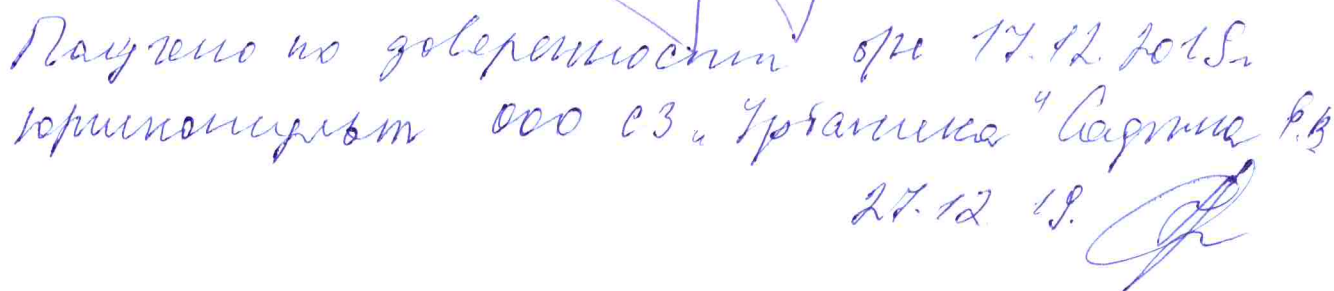 Получено по доверенности б/н 17.12.2019г
юрисконсульт ООО СЗ „Урбаника" Р.В
27.12 19.